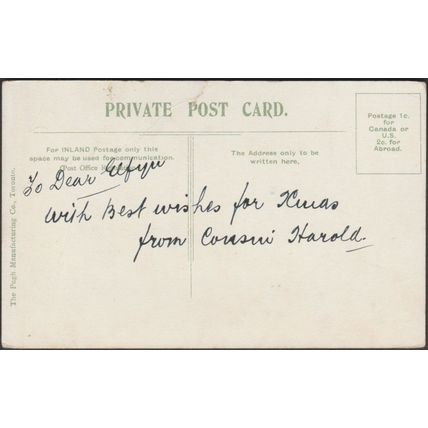 PRIVATE POST CARD.
Postage 1c.
for
Canada or
U.S.
2c. for
Abroad.
For INLAND Postage only this
space may be used for communication.
(Post Office
The Address only to be
written here,
To Dear Elfyn
with Best wishes for Xmas
from Cousin Harold.
The Pugh Manufacturing Co., Toronto.